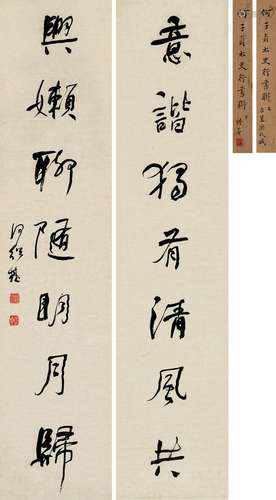 意諧獨有清風共
興嬾聊隨明月歸
何紹基
何子貞太史行書聯
何子貞太史行書聯